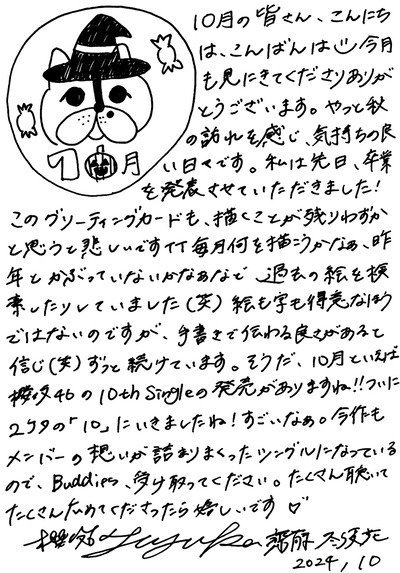 10月の皆さん、こんにち
は、こんばんは 今月
も見にきてくださりありが
とうございます。やっと秋
の訪れを感じ、気持ちの良
い日々です。私は先日、卒業
を発表させていただきました!
10月
このグリーティングカードも、描くことが残りわずか
と思うと悲しいですTT 毎月何を描こうかなぁ、昨
年とかぶっていないかなぁなど 過去の絵を検
索したりしていました(笑) 絵も字も得意なほう
ではないのですが、手書きで伝わる良さがあると
信じ(笑)ずっと続けています。そうだ、10月といえば
櫻坂46の10th Singleの発売がありますね!!ついに
2ケタの「10」にいきましたね!すごいなぁ。今作も
メンバーの想いが詰まりまくったシングルになっている
ので、Buddies、受け取ってください。たくさん聴いて
たくさん広めてくださったら嬉しいです♡
櫻坂46 Fuyuka 齋藤冬優花
2024,10